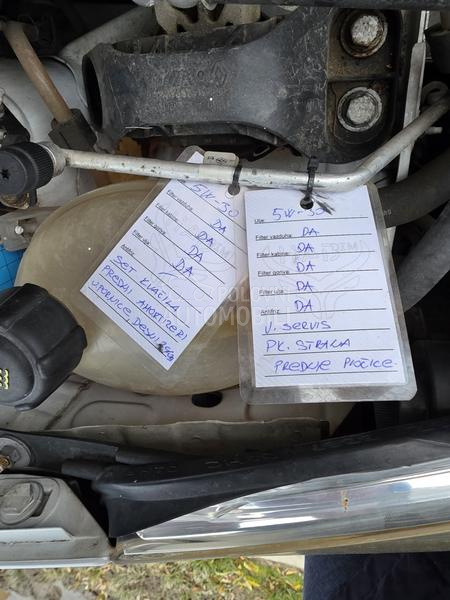 5W-30
Filter vazduha: DA
Filter kabine: DA
Filter goriva: DA
Filter ulja: DA
Antifriz:
SET KVAČILA
PREDNJI AMORTIZERI
Ulje: 5W-30
Filter vazduha: DA
Filter kabine: DA
Filter goriva: DA
Filter ulja: DA
Antifriz: DA
V. SERVIS
PK. STRANA
PREDNJE PLOČICE